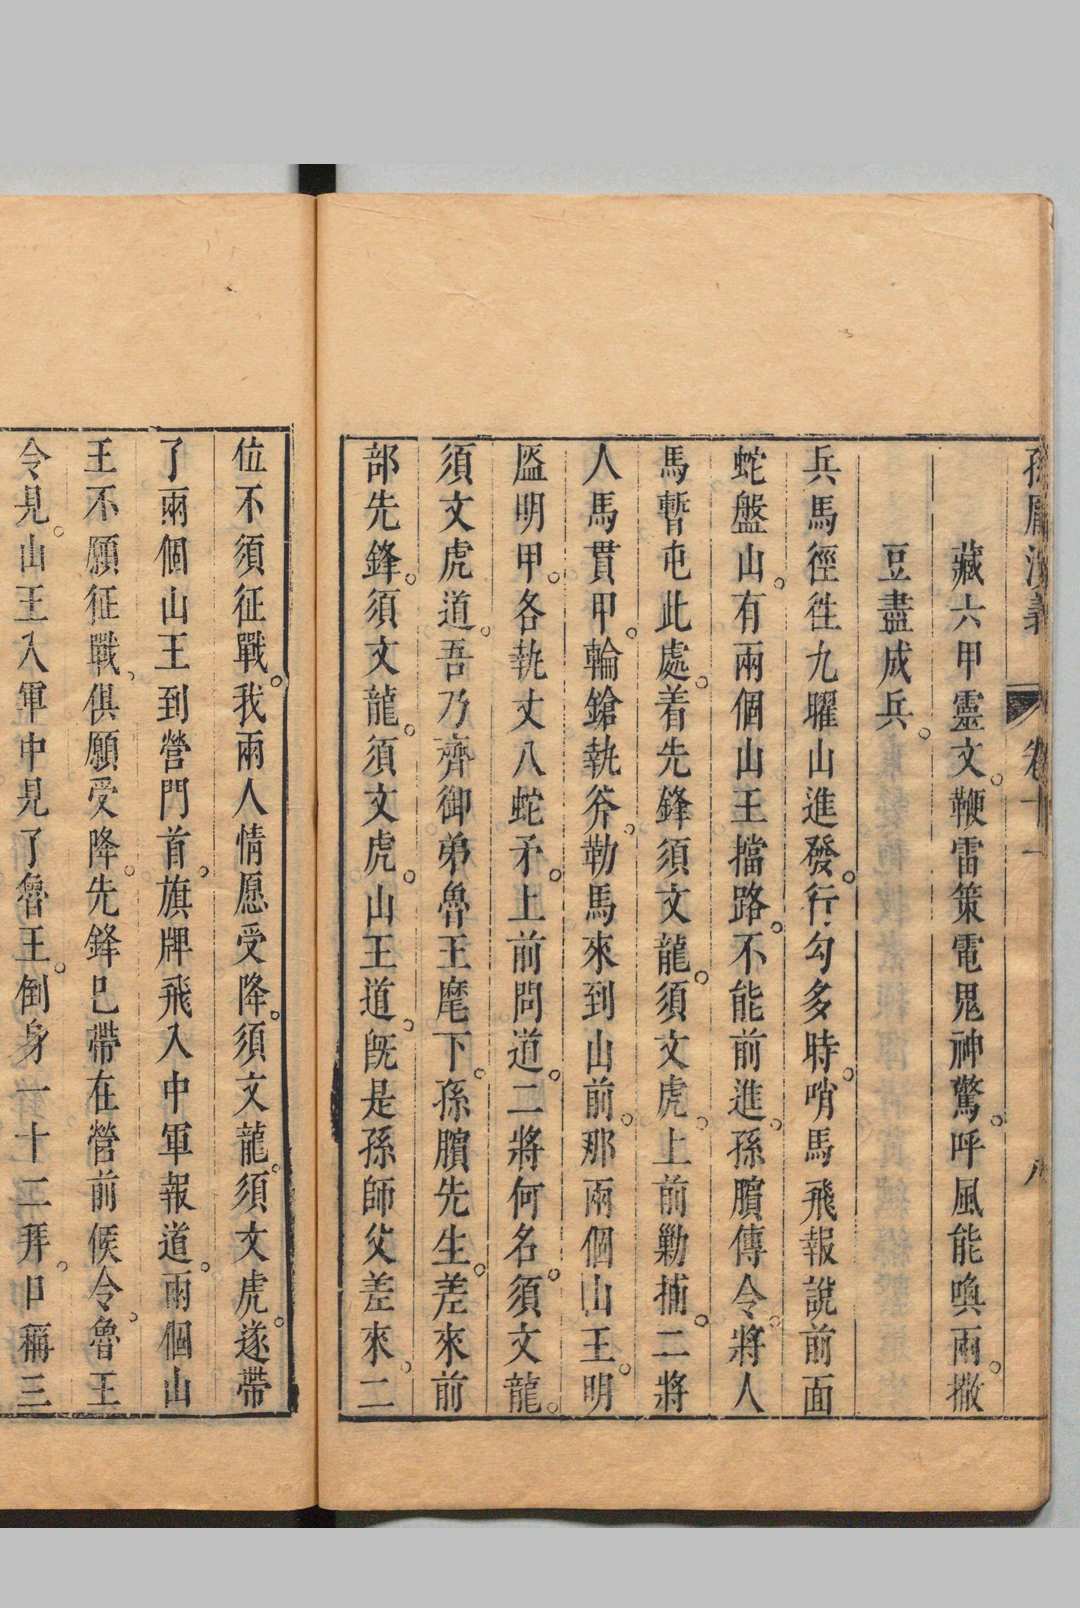 孫龐演義 卷十一 八
藏六甲靈文。鞭雷策電鬼神驚。呼風能喚雨。撒
豆盡成兵。
兵馬徑徃九曜山進發。行勾多時。哨馬飛報說前面
蛇盤山。有兩個山王擋路。不能前進。孫臏傳令。將人
馬暫屯此處。着先鋒須文龍。須文虎。上前勦捕。二將
人馬貫甲。輪鎗執斧。勒馬來到山前。那兩個山王。明
盔明甲。各執丈八蛇矛。上前問道。二將何名。須文龍。
須文虎道。吾乃齊御弟魯王麾下。孫臏先生。差來前
部先鋒。須文龍。須文虎。山王道。既是孫師父差來。二
位不須征戰。我兩人情愿受降。須文龍。須文虎。遂帶
了兩個山王到營門首。旗牌飛入中軍報道。兩個山
王不願征戰、俱願受降。先鋒已帶在營前候令。魯王
令見。山王入軍中見了魯王。倒身一十二拜。口稱三